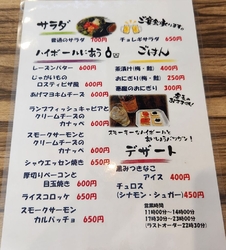 サラダ
普通のサラダ 700円
チョレギサラダ 650円
ハイボールにあう
レーズンバター 600円
じゃがいもの
ロスティピザ風 600円
あげマヨキムチ 600円
ランプフィッシュキャビアと
クリームチーズの
カナッペ 600円
スモークサーモンと
クリームチーズの
カナッペ 600円
シャウエッセン焼き 650円
厚切りベーコンと
目玉焼き 600円
ライスコロッケ 650円
スモークサーモン
カルパッチョ 650円
ごはん
茶漬け(梅・鮭) 400円
おにぎり(梅・鮭) 250円
悪魔のおにぎり 300円
デザート
黒みつきなこ
アイス 400円
チュロス
(シナモン・シュガー) 450円
営業時間
11時00分~14時00分
17時00分~23時00分
(ラストオーダー22時30分)